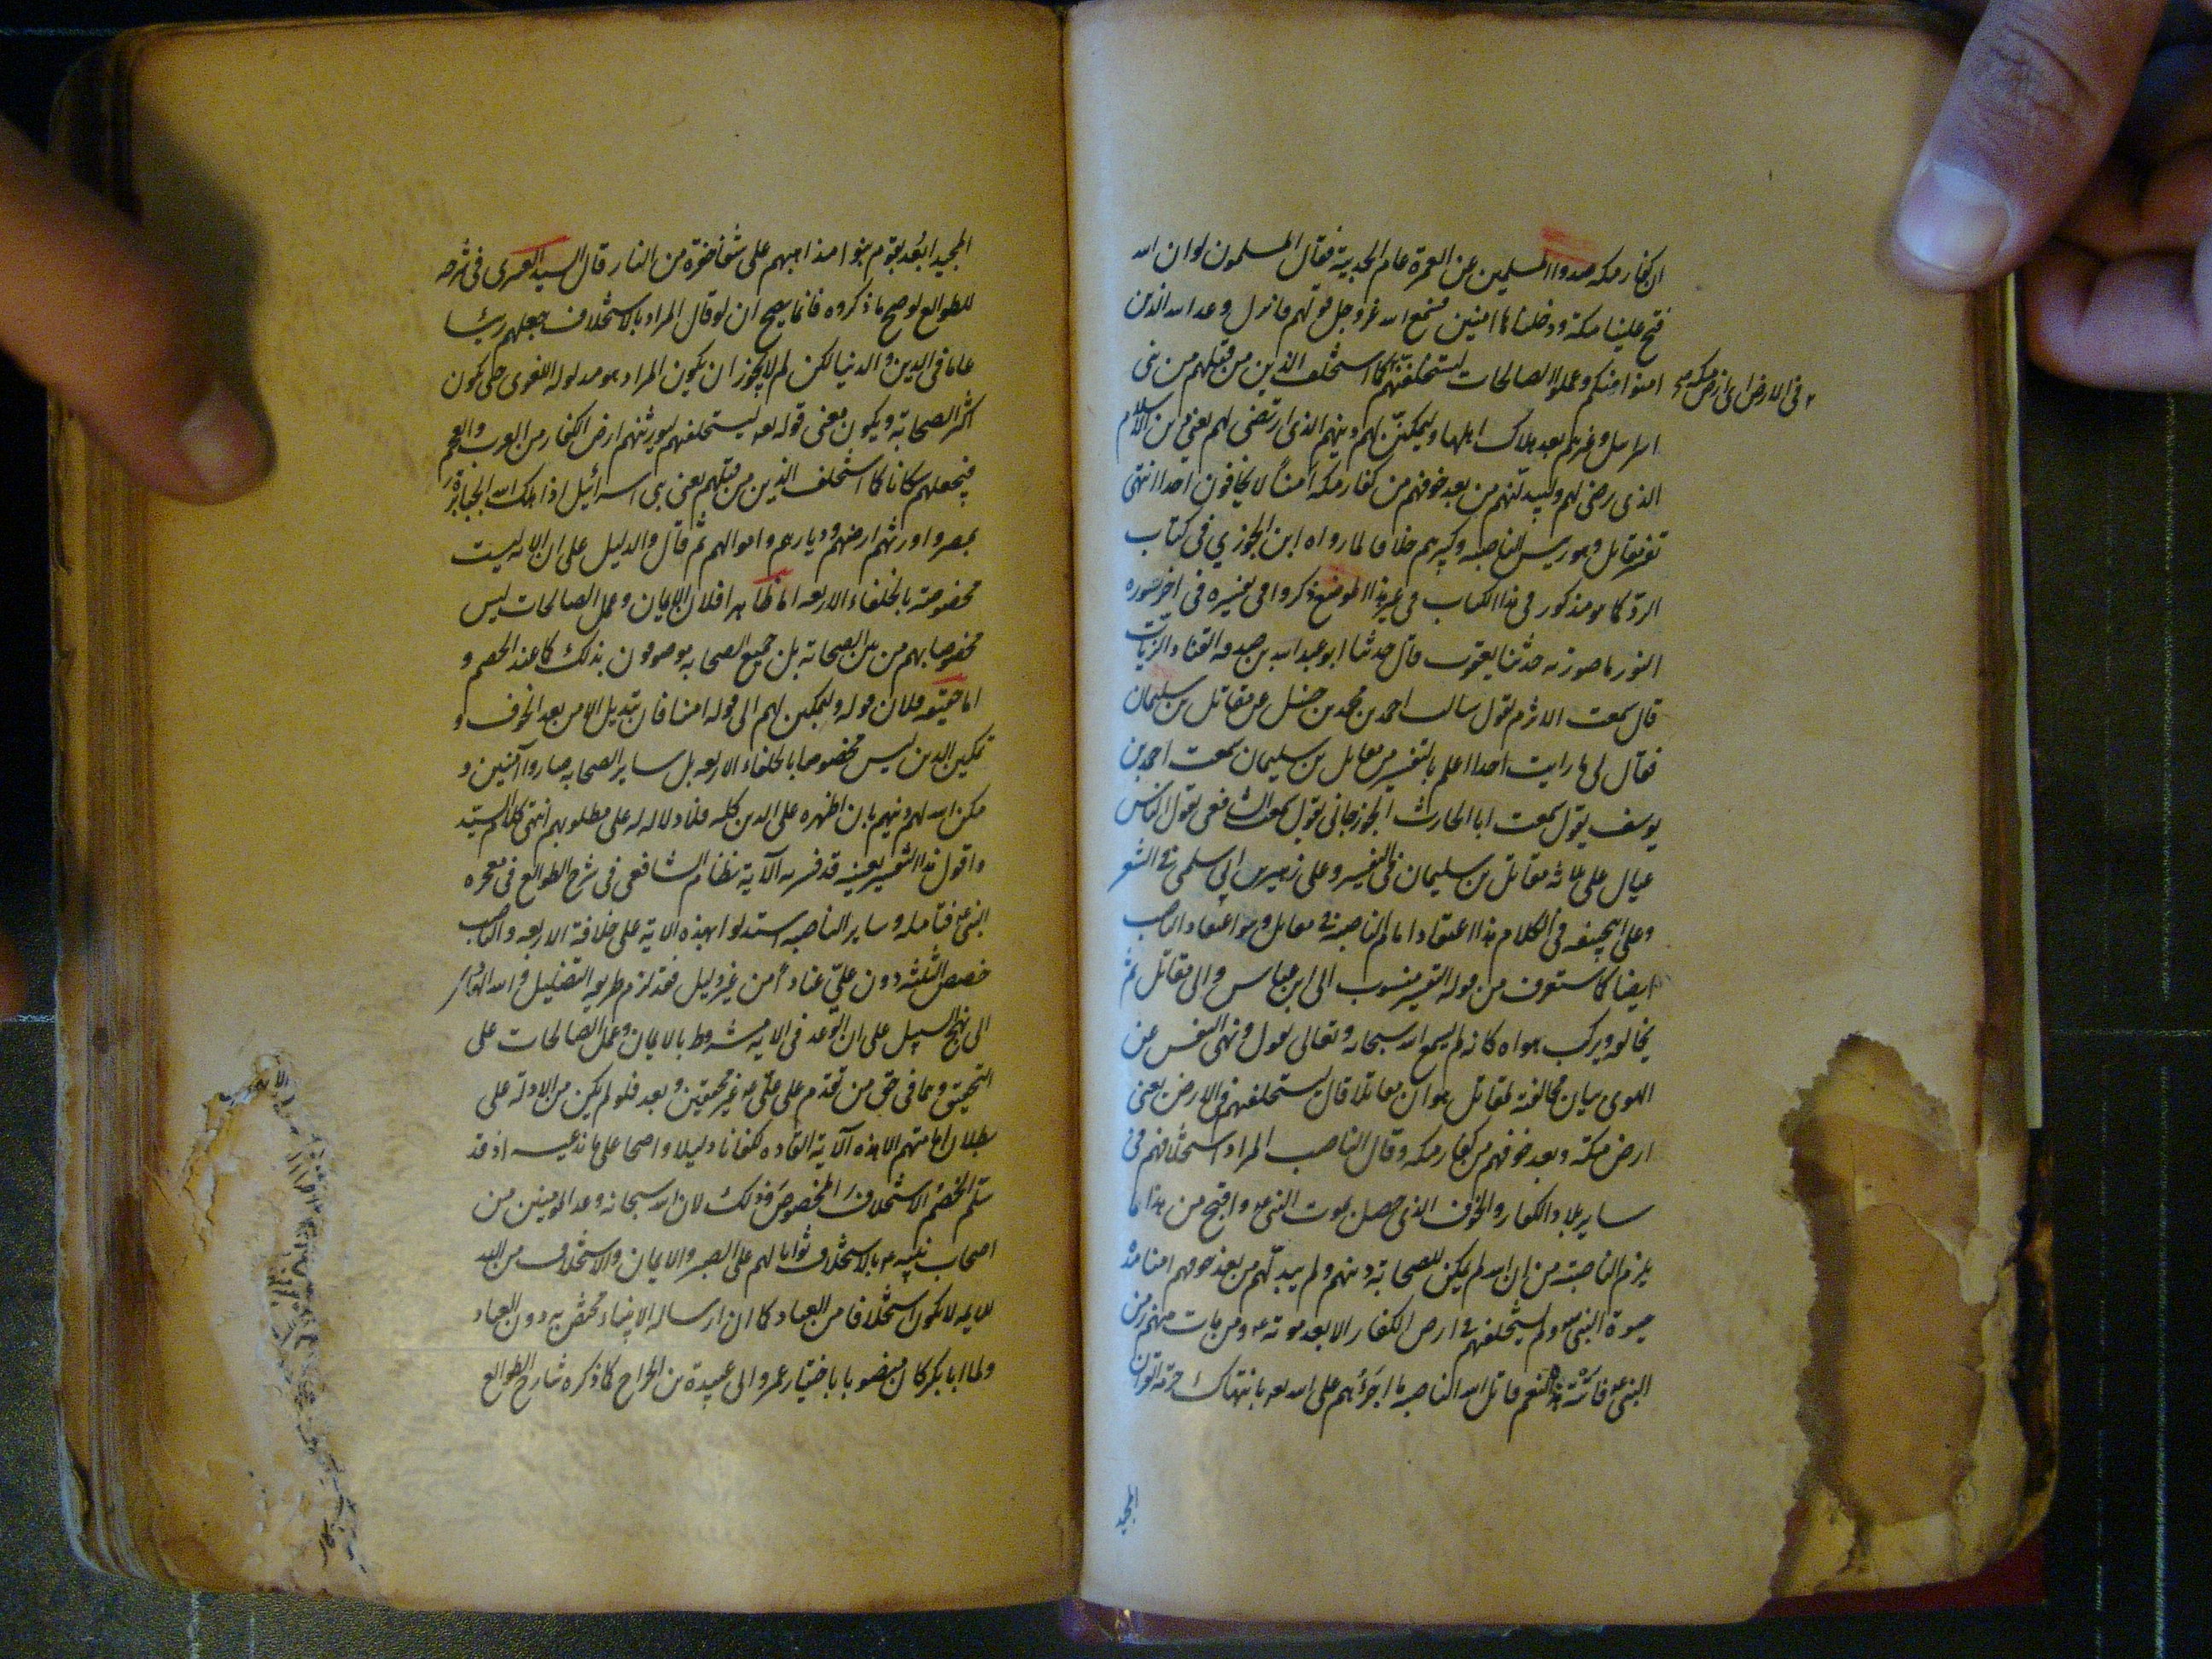 ان كفار مكه صدوا المسلمين عن العمرة عام الحديبية فقال المسلمون لو ان الله
فتح علينا مكة ودخلناها امنين فسمع الله عز وجل قولهم فانزل وعد الله الذين
امنوا منكم وعملوا الصالحات ليستخلفنهم كما استخلف الذين من قبلهم من بنى
في الارض اى ارض مكه
وغيرهم بعد هلاك اهلها وليمكنن لهم دينهم الذى ارتضى لهم يعنى دين الاسلام
الذى رضى لهم وليبدلنهم من بعد خوفهم من كفار مكه امنا لا يخافون احدا انتهى
تفسير مقاتل وهو رئيس الناصبه وكبيرهم خلافا لما رواه ابن الجوزي فى كتاب
الرد كما هو مذكور فى هذا الكتاب فى غير هذا الموضع ذكروا فى تفسيره فى اخر سوره
النور ما صورته حدثنا يعقوب قال حدثنا ابو عبد الله بن صدقه القناد الزيات
قال سمعت الاثرم يقول سالت احمد بن محمد بن حنبل عن مقاتل بن سليمان
فقال لى ما رايت احدا اعلم بالتفسير من مقاتل بن سليمان سمعت احمد بن
يوسف يقول سمعت ابا الحارث الجوزجانى يقول سمعت الشافعى يقول الناس
عيال على ثلاثه مقاتل بن سليمان فى التفسير وعلى زهير بن ابى سلمى فى الشعر
وعلى ابى حنيفه فى الكلام هذا اعتقاد امام الناصبة فى مقاتل وهو اعتقاد الناصب
ايضا كما ستعرف من قوله التفسير منسوب الى ابن عباس والى مقاتل ثم
يخالفه ويركب هواه كانه لم يسمع الله سبحانه وتعالى يقول ونهى النفس عن
الهوى بيان مخالفته لمقاتل هو ان مقاتلا قال ليستخلفنهم فى الارض يعنى
ارض مكة وبعد خوفهم من كفار مكه وقال الناصب المراد استخلافهم فى
ساير بلاد الكفار والخوف الذى حصل بموت النبى واقبح من هذا ما
يلزم الناصبة من ان الله لم يمكن للصحابة دينهم ولم يبدلهم من بعد خوفهم امنا مدة
حيوة النبى ولم يستخلفهم فى ارض الكفار الا بعد موته ومن مات منهم زمن
النبى فاتته هذه النعم قاتل الله الناصبه ما اجرئهم على الله بانتهاك حرمة القران
المجيد
المجيد ابعد بقوم بنوا مذاهبهم على شفا حفرة من النار قال السيد العبرى فى شرحه
للطوالع لو صح ما ذكروه فانما يصح ان لو قال المراد بالاستخلاف جعلهم رئيسا
عاما فى الدين والدنيا لكن لم لا يجوز ان يكون المراد هو مدلوله اللغوى حتى يكون
اكثر الصحابة ويكون معنى قوله ليستخلفنهم ليورثنهم ارض الكفار من العرب والعجم
فيجعلهم سكانا كما استخلف الذين من قبلهم يعنى بنى اسرائيل اذ اهلك الله الجبابرة
بمصر واورثهم ارضهم وديارهم واموالهم ثم قال والدليل على ان الايه ليست
مخصوصة بالخلفاء الاربعه اما ظاهرا فلان الايمان وعمل الصالحات ليس
مخصوصا بهم من بين الصحابة بل جميع الصحابه موصوفون بذلك كما عند الخصم و
اما حقيقه فلان قوله وليمكنن لهم الى قوله امنا فان تبديل الامن بعد الخوف و
تمكين الدين ليس مخصوصا بالخلفاء الاربعه بل ساير الصحابه صاروا آمنين و
مكن الله لهم دينهم بان اظهره على الدين كله فلا دلالة له على مطلوبهم انتهى كلام السيد
واقول هذا التفسير بعينه قد فسر به الآية نظام الشافعى فى شرح الطوالع فى معجزه
النبى فتامله وساير الناصبه استدلوا بهذه الاية على خلافة الاربعه والناصب
خصص الثلثه دون على عنادا من غير دليل فقد لزم طريق التضليل والله
الى نهج السبيل على ان الوعد فى الايه مشروط بالايمان وعمل الصالحات على
التحقيق وهما فى حق من تقدم على على غير محققين وبعد فلو لم يكن من الادلة على
بطلان امامتهم الا هذه الآية القاده لكفانا دليلا واضحا على ما ندعيه اذ قد
سلم الخصم الاستخلاف المخصوص وذلك لان الله سبحانه وعد المومنين من
اصحاب نبيه بالاستخلاف ثوابا لهم على الصبر والايمان والاستخلاف من الله
للايمه لا يكون استخلافا من العباد كما ان ارساله الانبياء مختص به دون العباد
ولما ابا بكر كان منصوبا باختيار عمر وابى عبيدة بن الجراح كما ذكره شارح الطوالع